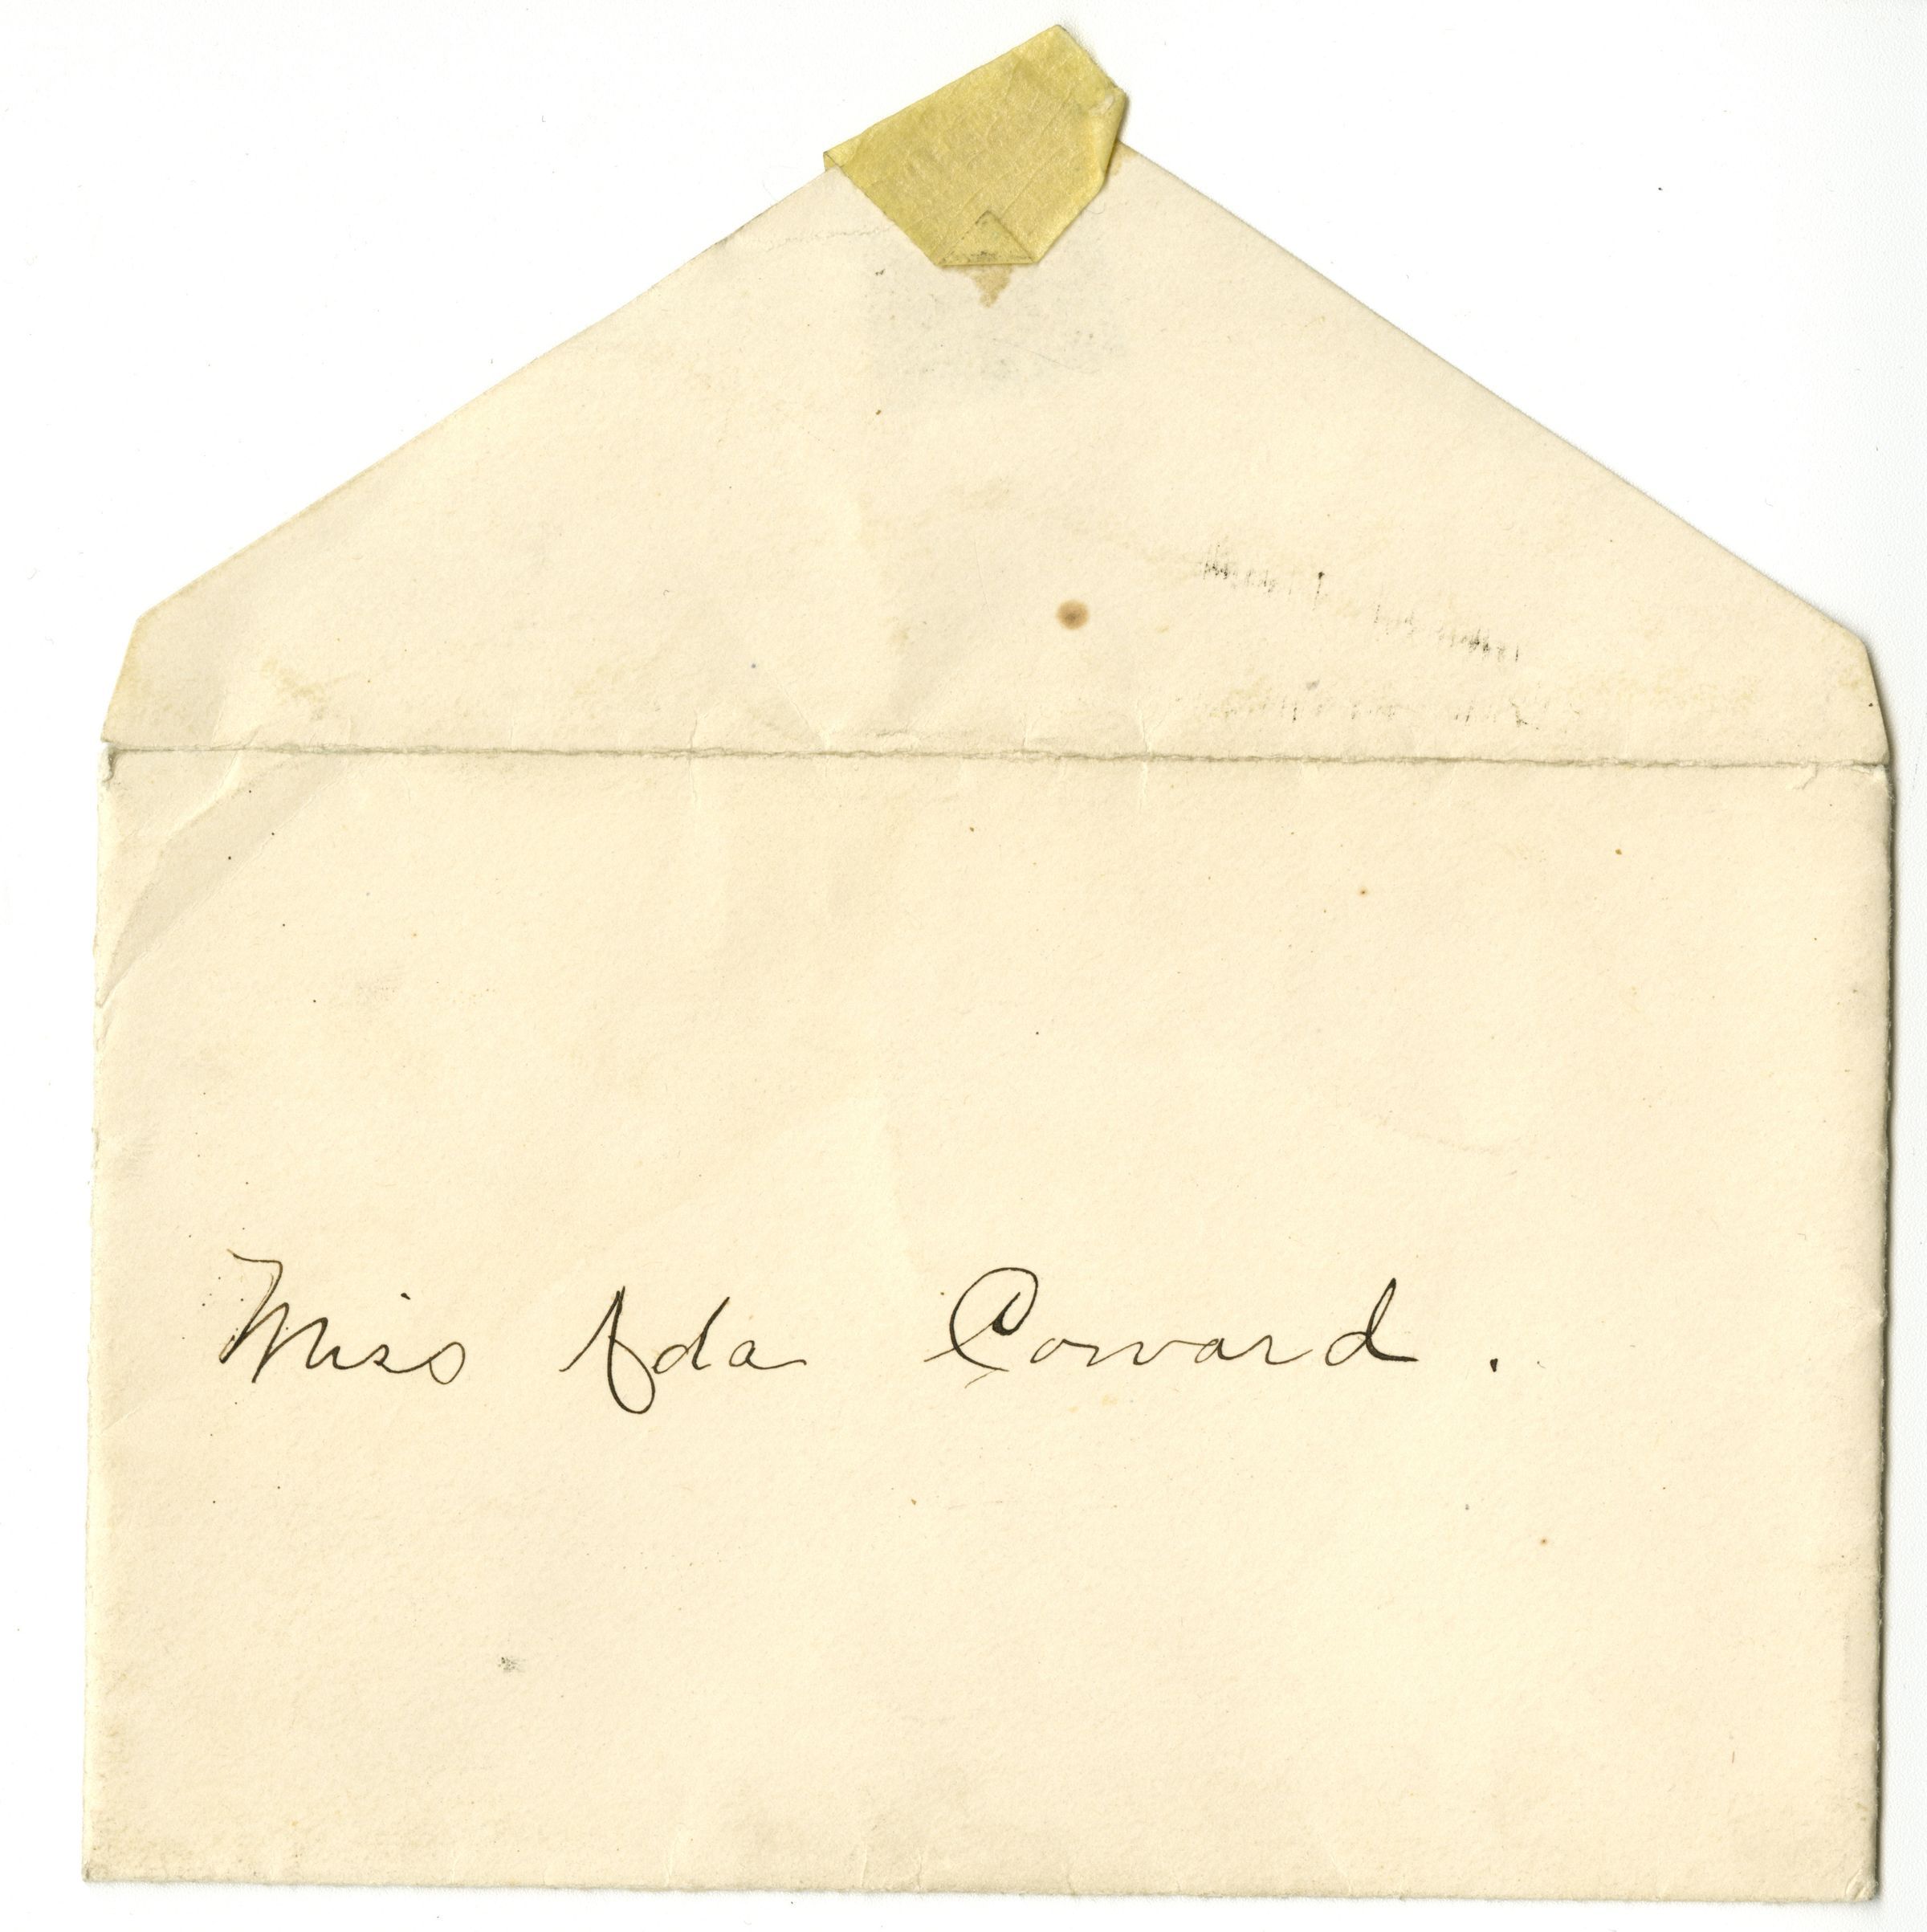 Miss Ada Coward.